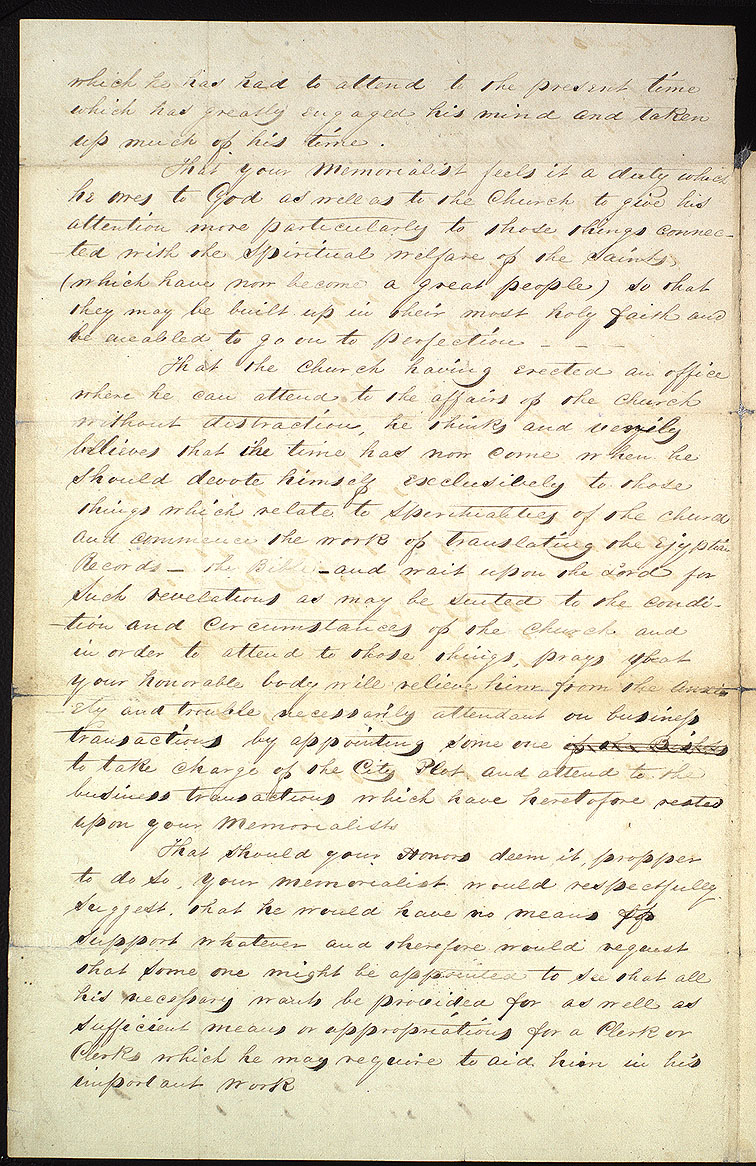 which he has had to attend to the present time
which has greatly engaged his mind and taken
up much of his time.
That your Memorialist feels it a duty which
he owes to God as well as to the Church to give his
attention more particularly to those things connec-
-ted with the Spiritual welfare of the saints,
(which have now become a great people) so that
they may be built up in their most holy faith and
be enabled to go on to perfection - - -
That the Church having erected an office
where he can attend to the affairs of the Church
without distraction, he thinks and verrily
believes that the time has now come when he
should devote himself exclusively to those
things which relate to Spiritualities of the church
and commence the work of translating the Ejyptian
Records — the Bible — and wait upon the Lord for
such revelations as may be suited to the condi-
-tion and circumstances of the church and
in order to attend to those things, prays that
your honorable body will relieve him from the anxi
ety and trouble necessarily attendant on business
transactions by appointing some one of the Bishops
to take charge of the City Plot and attend to the
business transactions which have heretofore rested
upon your Memorialists
That should your Honors deem it propper
to do so, your memorialist would respectfully
suggest, that he would have no means of
support whatever and therefore would request
that some one might be appointed to see that all
his necessary wants be provided for as well as
sufficient means or appropriations for a Clerk or
Clerks which he may require to aid him in his
important work